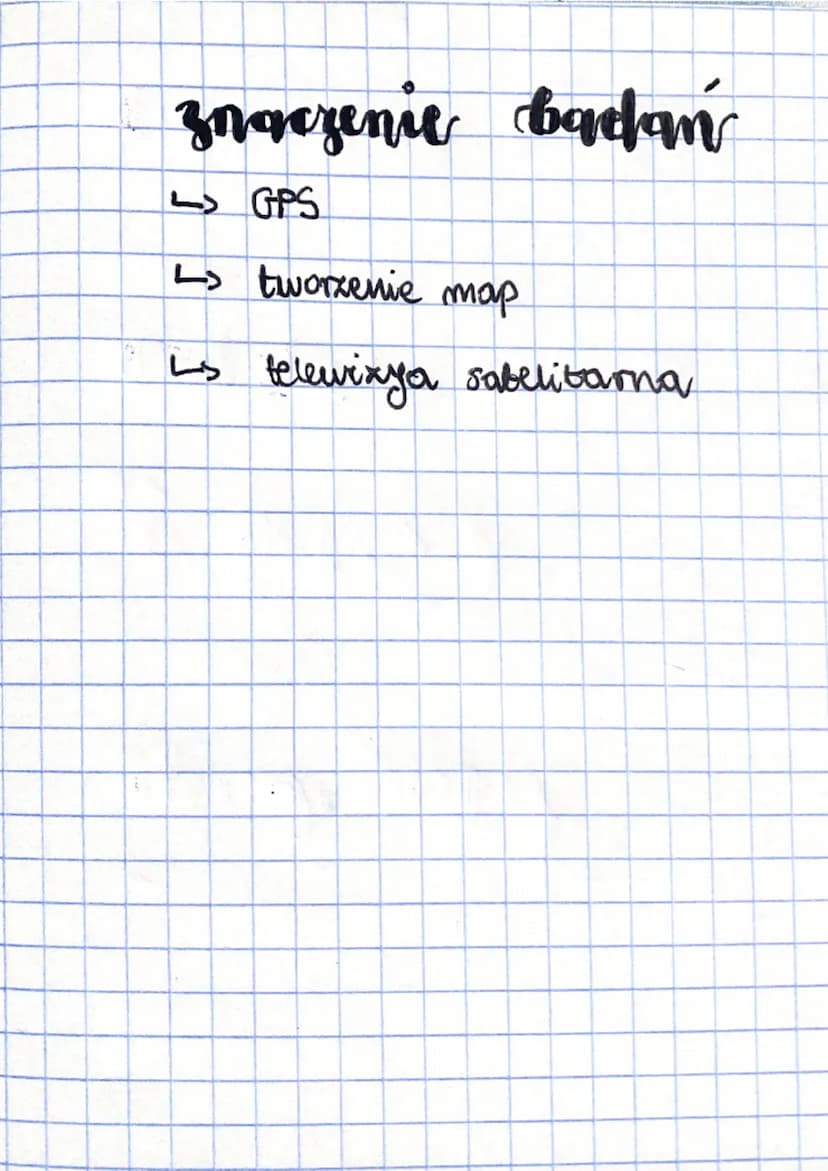 znaczenie badań
↳ GPS
↳ tworzenie map
↳ telewizja satelitarna